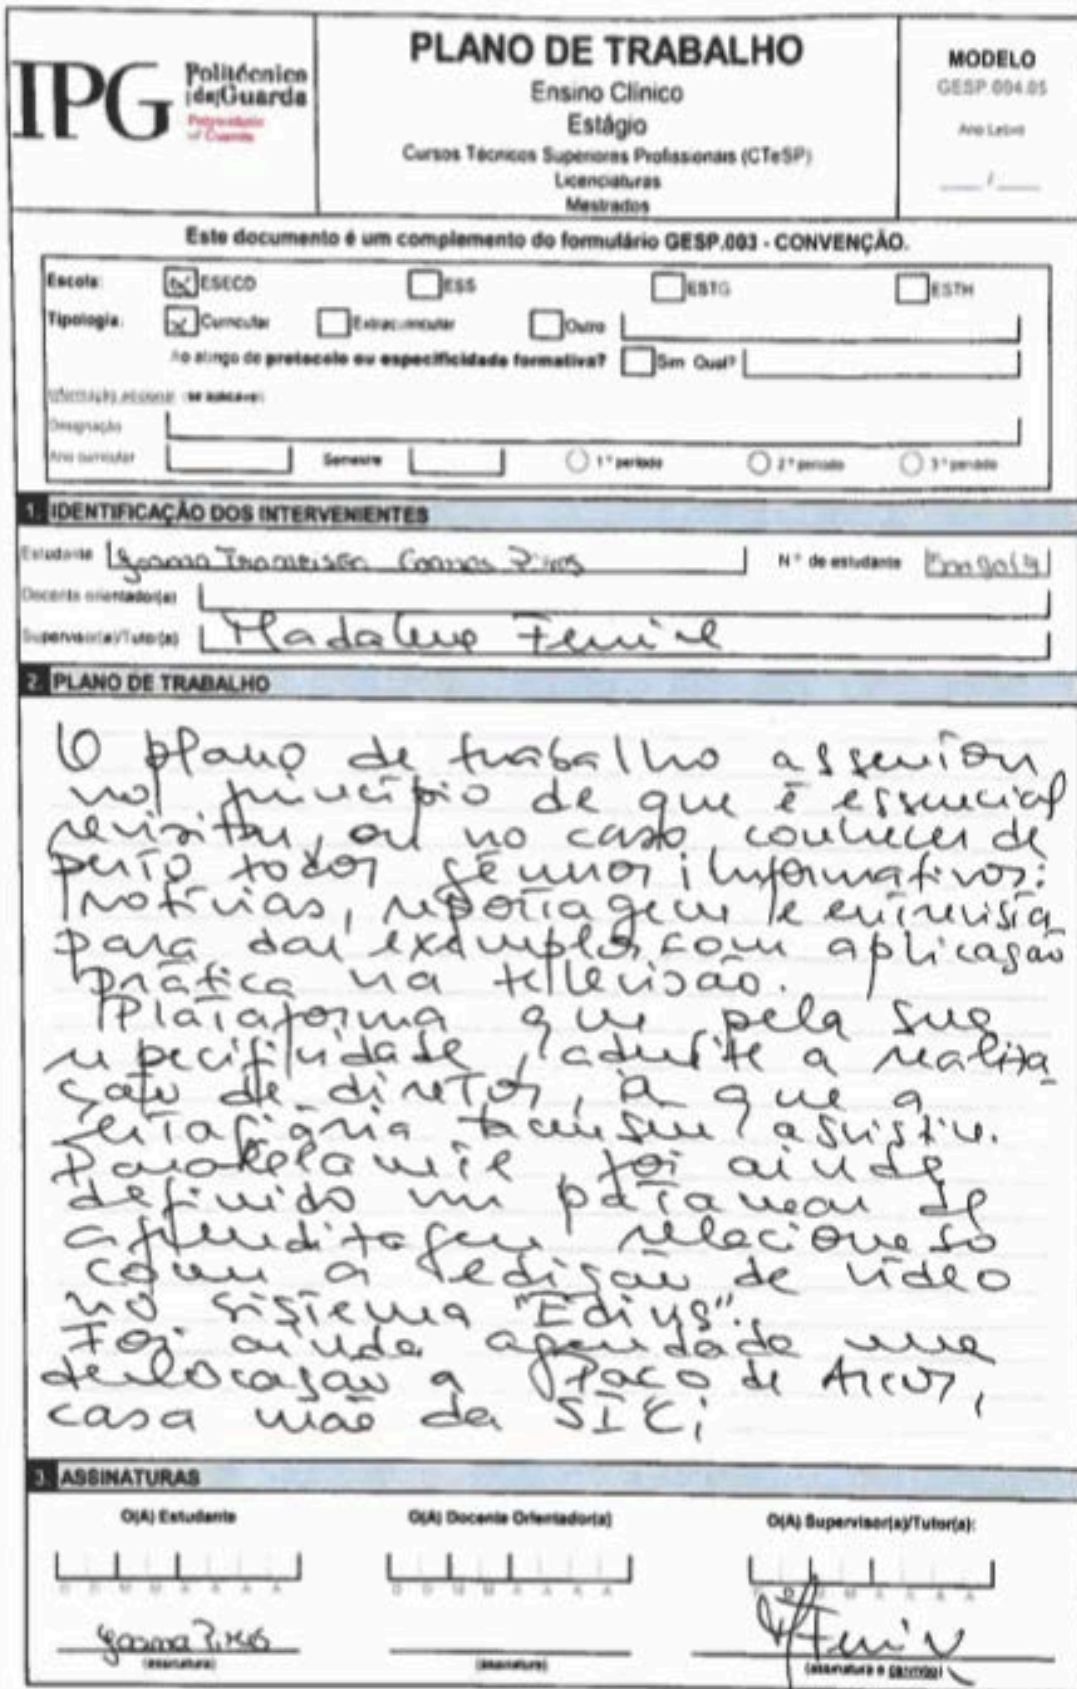 IPG
Politécnico
da|Guarda
Polytechnic
of Guarda
PLANO DE TRABALHO
Ensino Clínico
Estágio
Cursos Técnicos Superiores Profissionais (CTeSP)
Licenciaturas
Mestrados
MODELO
GESP.004.05
Ano Letivo
____/____
Este documento é um complemento do formulário GESP.003 - CONVENÇÃO.
Escola: ESECD ESS ESTG ESTH
Tipologia: Curricular Extracurricular Outro
Ao abrigo de protocolo ou especificidade formativa? Sim Qual?
(se aplicável)
Designação
Ano curricular Semestre 1º período 2º período 3º período
1. IDENTIFICAÇÃO DOS INTERVENIENTES
Estudante Nº de estudante
Docente orientador(a)
Supervisor(a)/Tutor(a) Madalena Ferreira
2. PLANO DE TRABALHO
O plano de trabalho assentou
no princípio de que é essencial
revisitar, ou no caso conhecer de
perto todos géneros informativos:
notícias, reportagem e entrevista
para dar exemplos com aplicação
prática na televisão.
Plataforma que pela sua
especificidade, admite a realiza
ção de diretos, a que a
estagiária também assistiu.
Paralelamente foi ainda
definido um patamar de
aprendizagem relacionado
com a edição de vídeo
no sistema "Edius".
Foi ainda agendada uma
deslocação a Paço de Arcos,
casa mãe da SIC;
3. ASSINATURAS
O(A) Estudante O(A) Docente Orientador(a) O(A) Supervisor(a)/Tutor(a):
D D M M A A A A D D M M A A A A D D M M A A A A
(assinatura) (assinatura) (assinatura e carimbo)